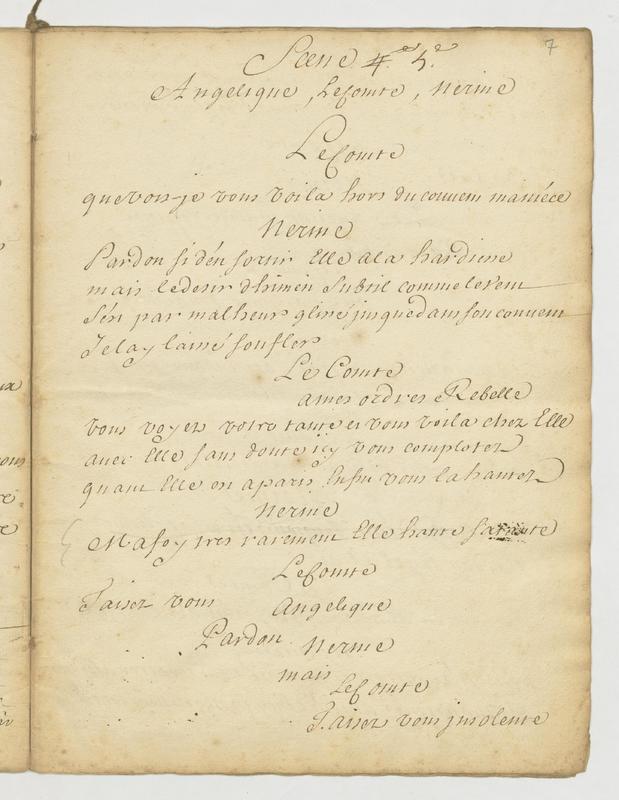 7
Scene 4e 5e
Angelique, Le Comte, Nerine
Le Comte
que vois-je vous voila hors du couvent ma niéce
Nerine
Pardon si dén sortir Elle a la hardiesse
mais le desir dhimen Subtil comme le vent
S'ést par malheur glissé jusque dans son couvent
Je lay laissé soufler
Le Comte
a mes ordres Rebelle
vous voyez votre tante et vous voila chez Elle
avec Elle sans doute icy vous complotez
quant Elle est a paris Enfin vous la hantez
Nerine
Ma foy tres rarement Elle hante sa tante
Le Comte
Taisez vous
Angelique
Pardon
Nerine
mais
Le Comte
Taisez vous jnsolente